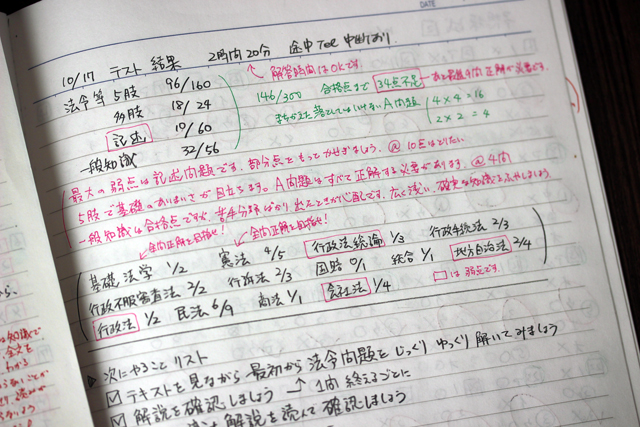 DATE
10/17 テスト 結果 2時間20分 途中Tel 中断あり
↑解答時間はOKです。
法令等 5肢 96/160
多肢 18/24
記述 10/60
一般知識 32/56
146/300 合格点まで 34点不足
まちがえた落としてはいけない A問題
4×4=16
2×2=4
最大の弱点は記述問題です。部分点をもってかせぎましょう。@10点はとりたい
5肢で基礎のあいまいさが目立ちます。A問題はすべて正解する必要があります。@4問
一般知識は合格点ですが、苦手分野ばかり出たときが心配です。広く浅い、確実な知識をふやしましょう
全問正解を目指せ! 全問正解を目指せ!
基礎法学 1/2 憲法 4/5 行政法総論 1/3 行政手続法 2/3
行政不服審査法 2/2 行訴法 2/3 国賠 0/1 総合 1/1 地方自治法 2/4
行政法 1/2 民法 6/9 商法 1/1 会社法 1/4 □は弱点です。
次にやること リスト
☑ テキストを見ながら 最初から 法令問題を じっくり ゆっくり 解いてみましょう
☑ 解説を確認しましょう ↑ 1問 終るごとに
解説を読んで 確認しましょう